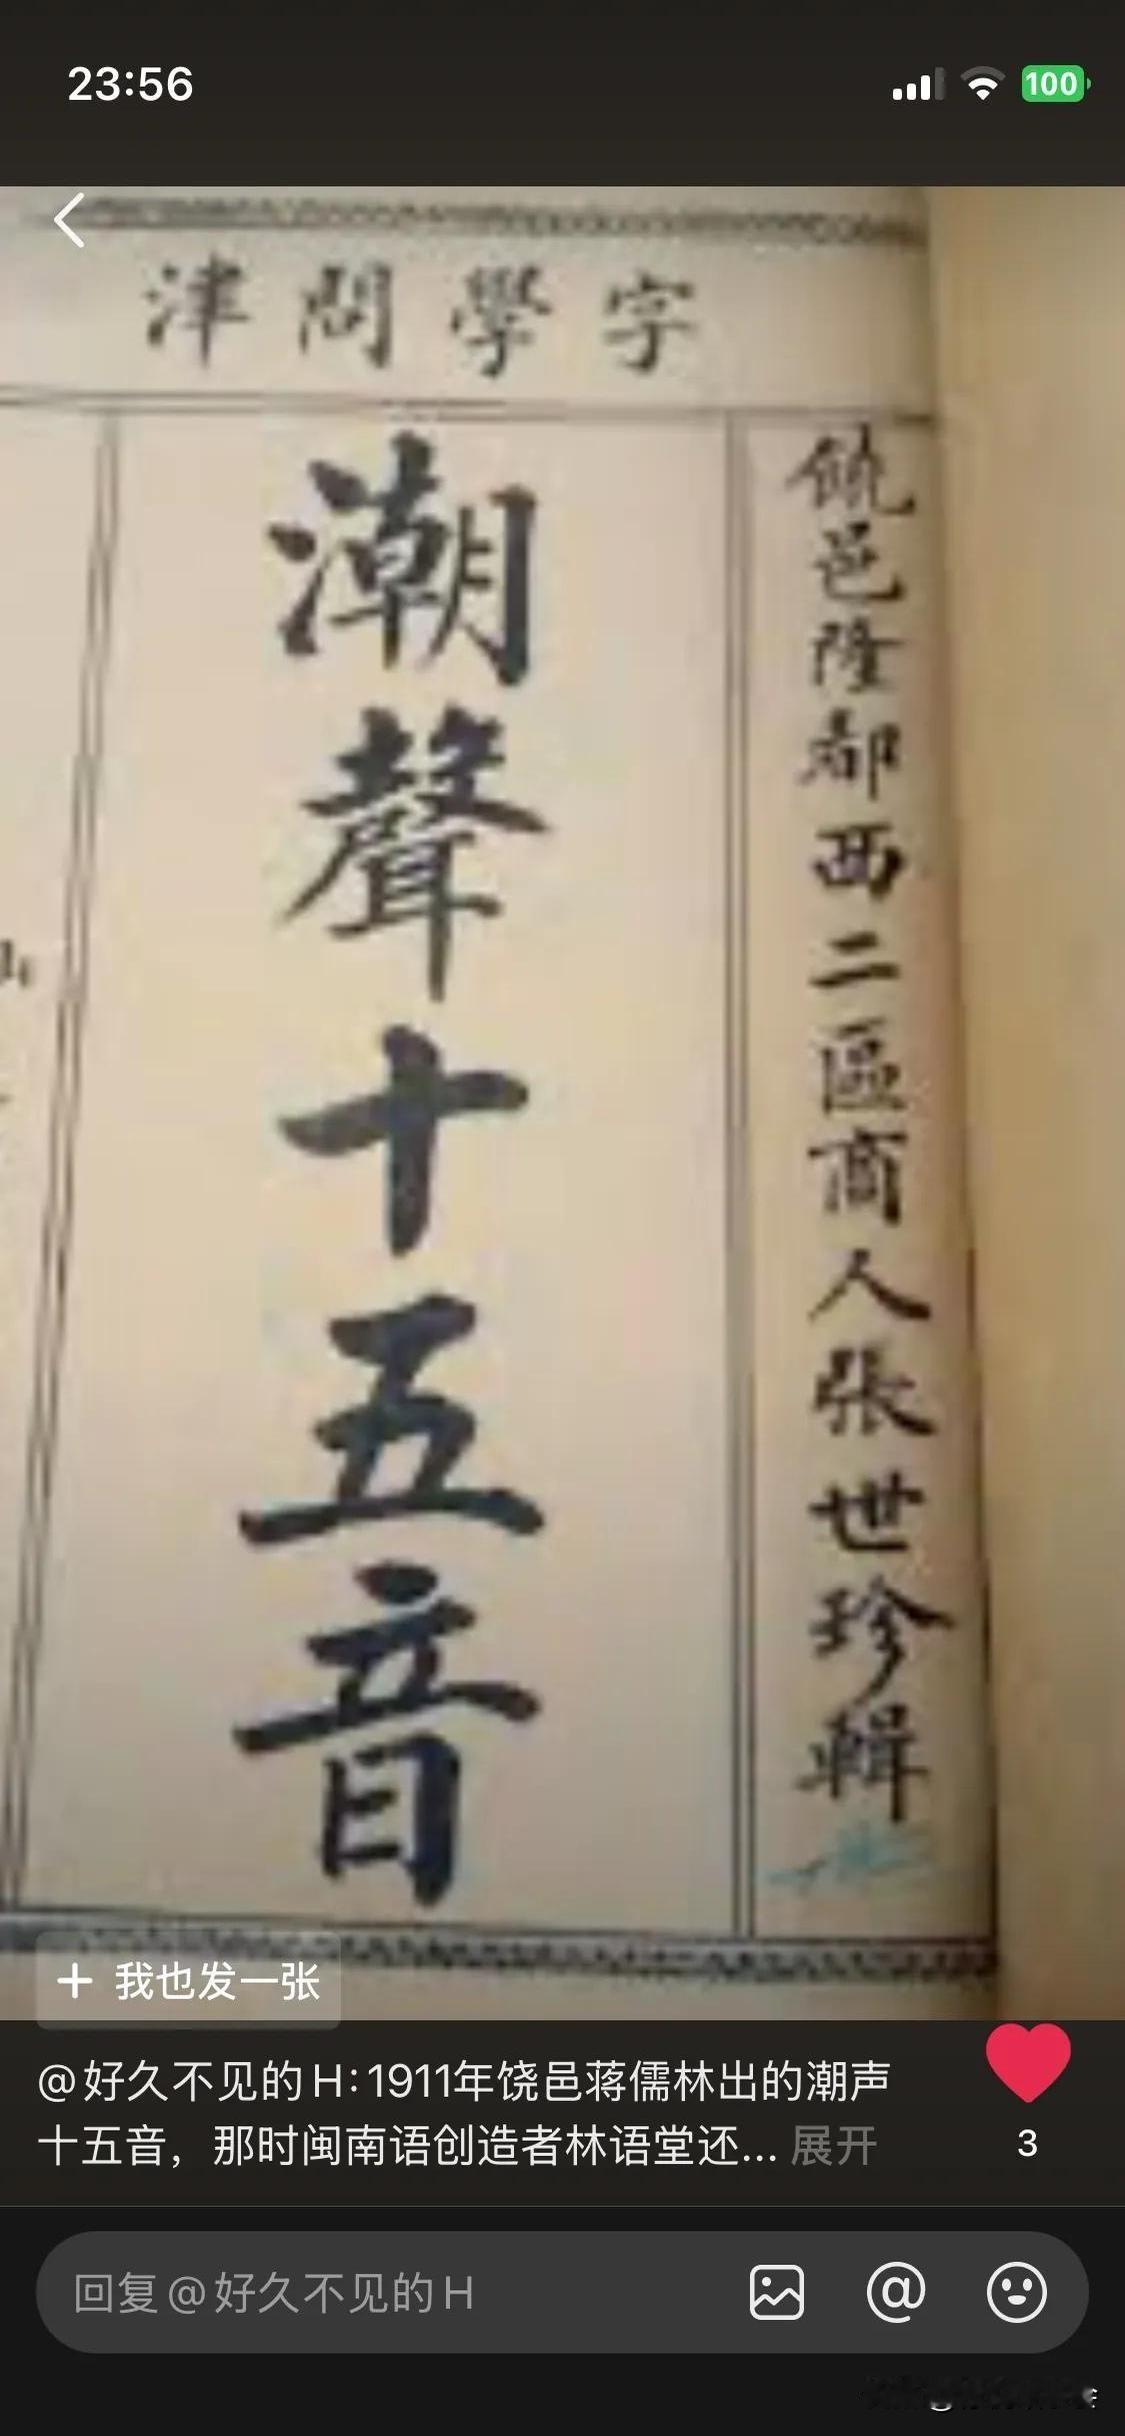 23:56
100
字學問津
饒邑隆都西二區商人張世珍輯
潮聲十五音
山
+ 我也发一张
@好久不见的H:1911年饶邑蒋儒林出的潮声
十五音，那时闽南语创造者林语堂还... 展开
3
回复@好久不见的H